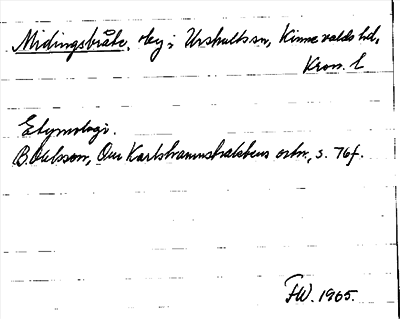 Midingsbråte, by i Urshults sn, Kinnevalds hd,
Kron. l
Etymologi.
B. Ohlsson, Om Karlshamnstraktens ortn., s. 76f.
FW. 1965.